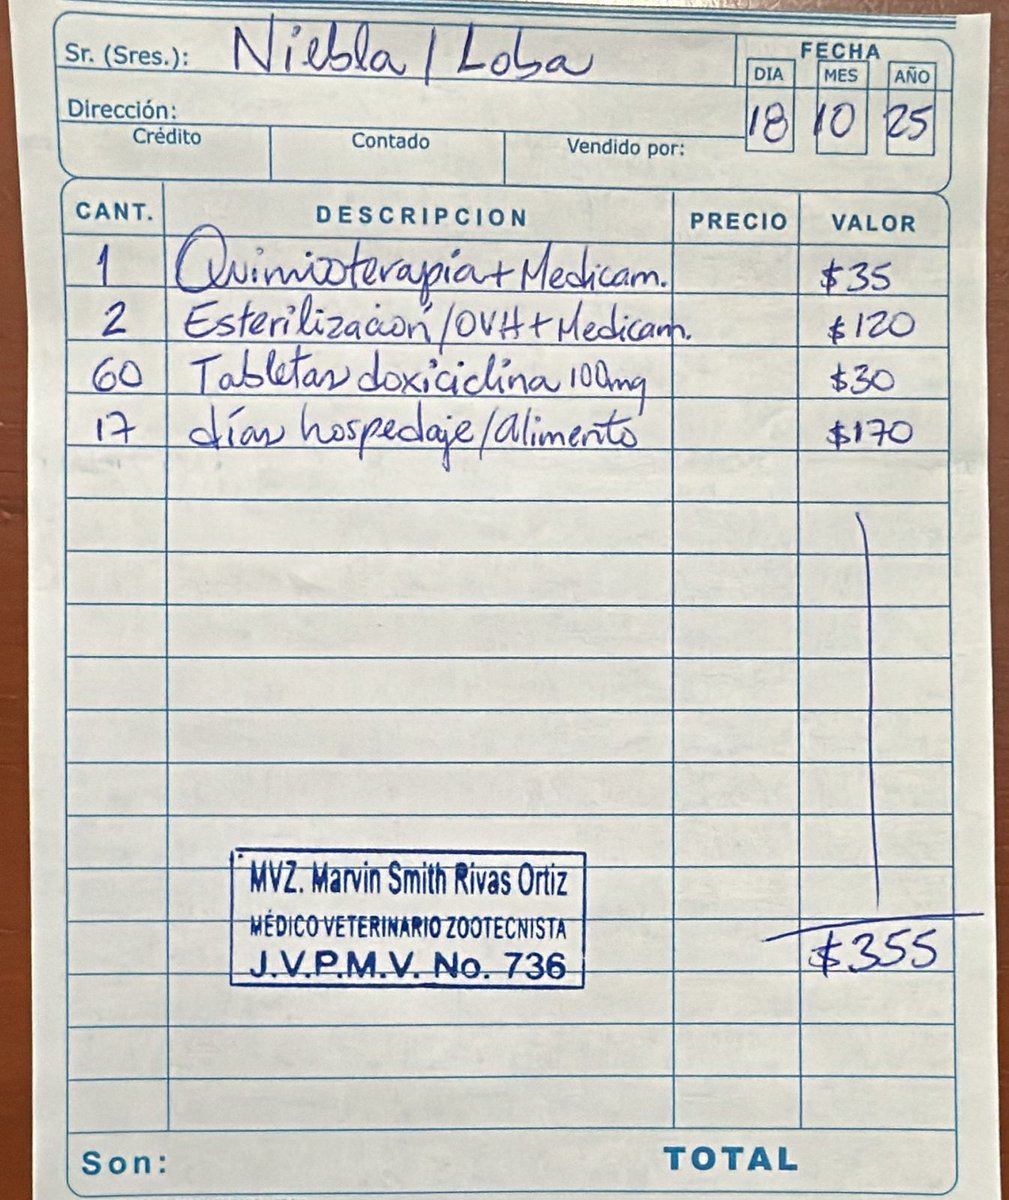 Sr. (Sres.): Niebla / Loba
FECHA
DIA MES AÑO
18 10 25
Dirección:
Crédito Contado Vendido por:
CANT. DESCRIPCION PRECIO VALOR
1 Quimioterapia + Medicam. $35
2 Esterilización / OVH + Medicam. $120
60 Tabletas doxiciclina 100mg $30
17 días hospedaje / alimento $170
MVZ. Marvin Smith Rivas Ortiz
MÉDICO VETERINARIO ZOOTECNISTA
J.V.P.M.V. No. 736
$355
Son: TOTAL